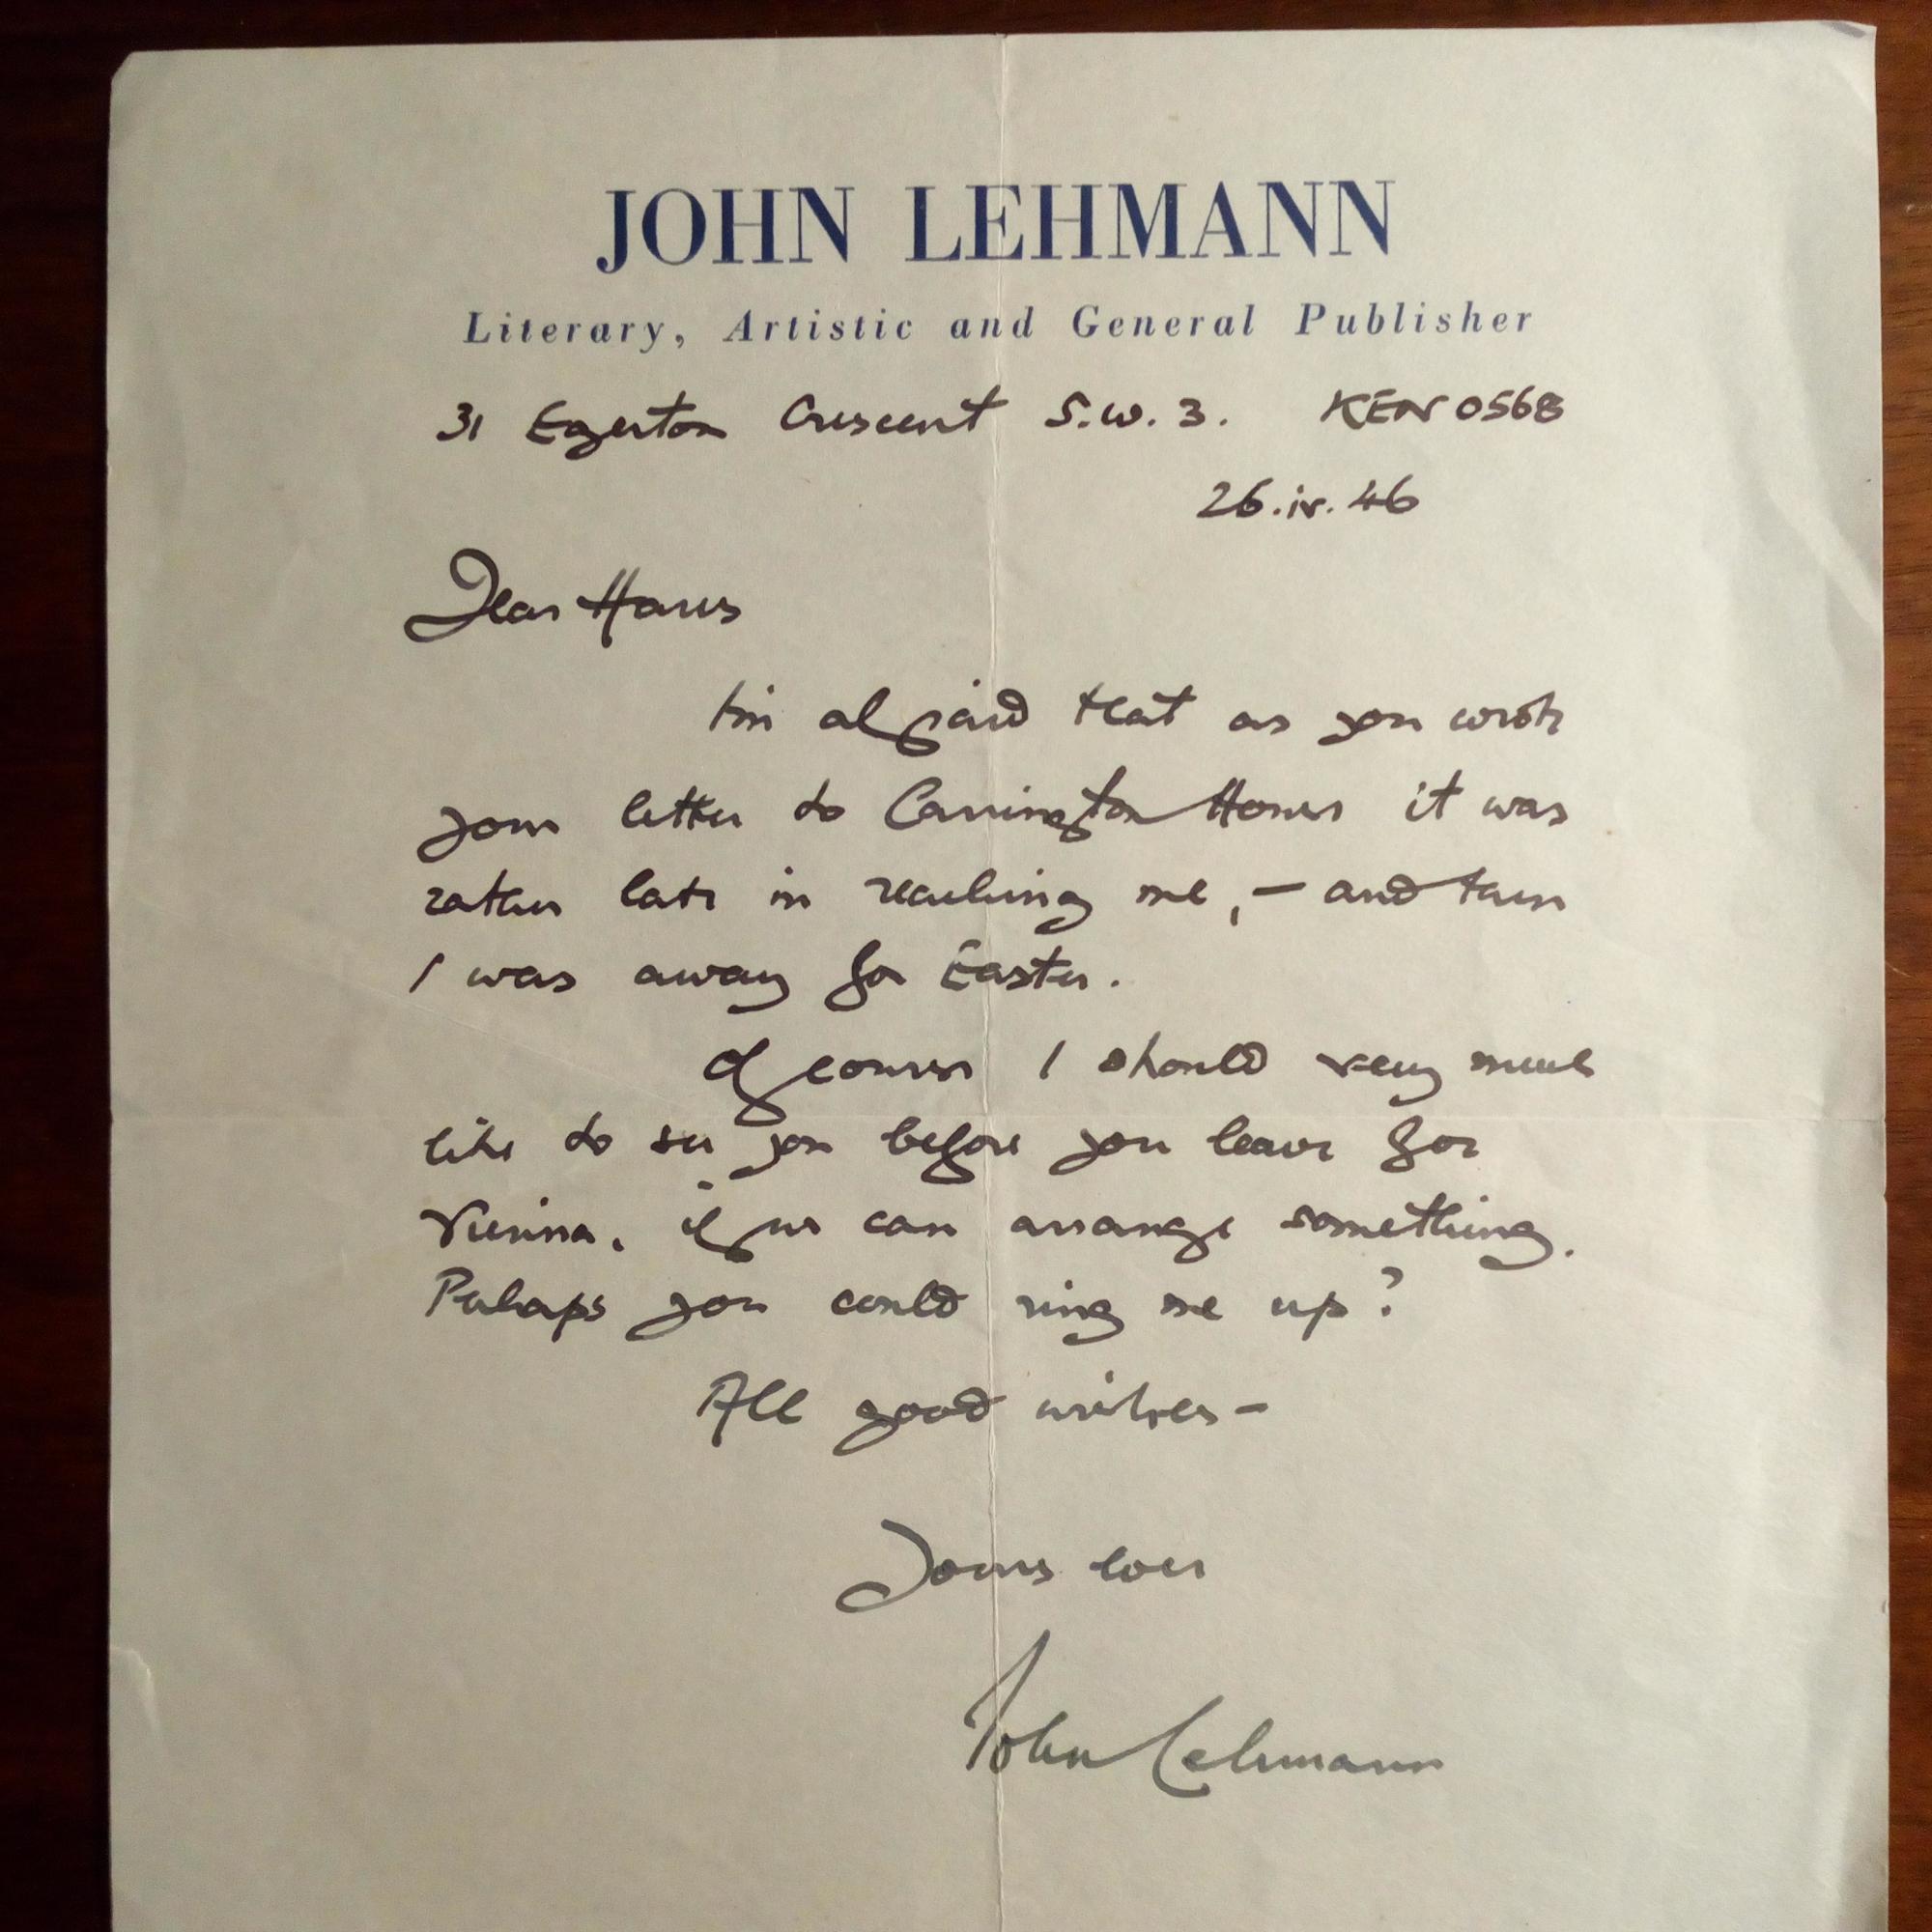 JOHN LEHMANN
Literary, Artistic and General Publisher
31 Egerton Crescent S.W.3. KEN 0568
26.iv.46
Dear
I'm afraid that as you wrote
your letter to Carrington House it was
rather late in reaching me, – and then
I was away for Easter.
Of course I should very much
like to see you before you leave for
Vienna, if we can arrange something.
Perhaps you could ring me up?
All good wishes –
Yours ever
John Lehmann